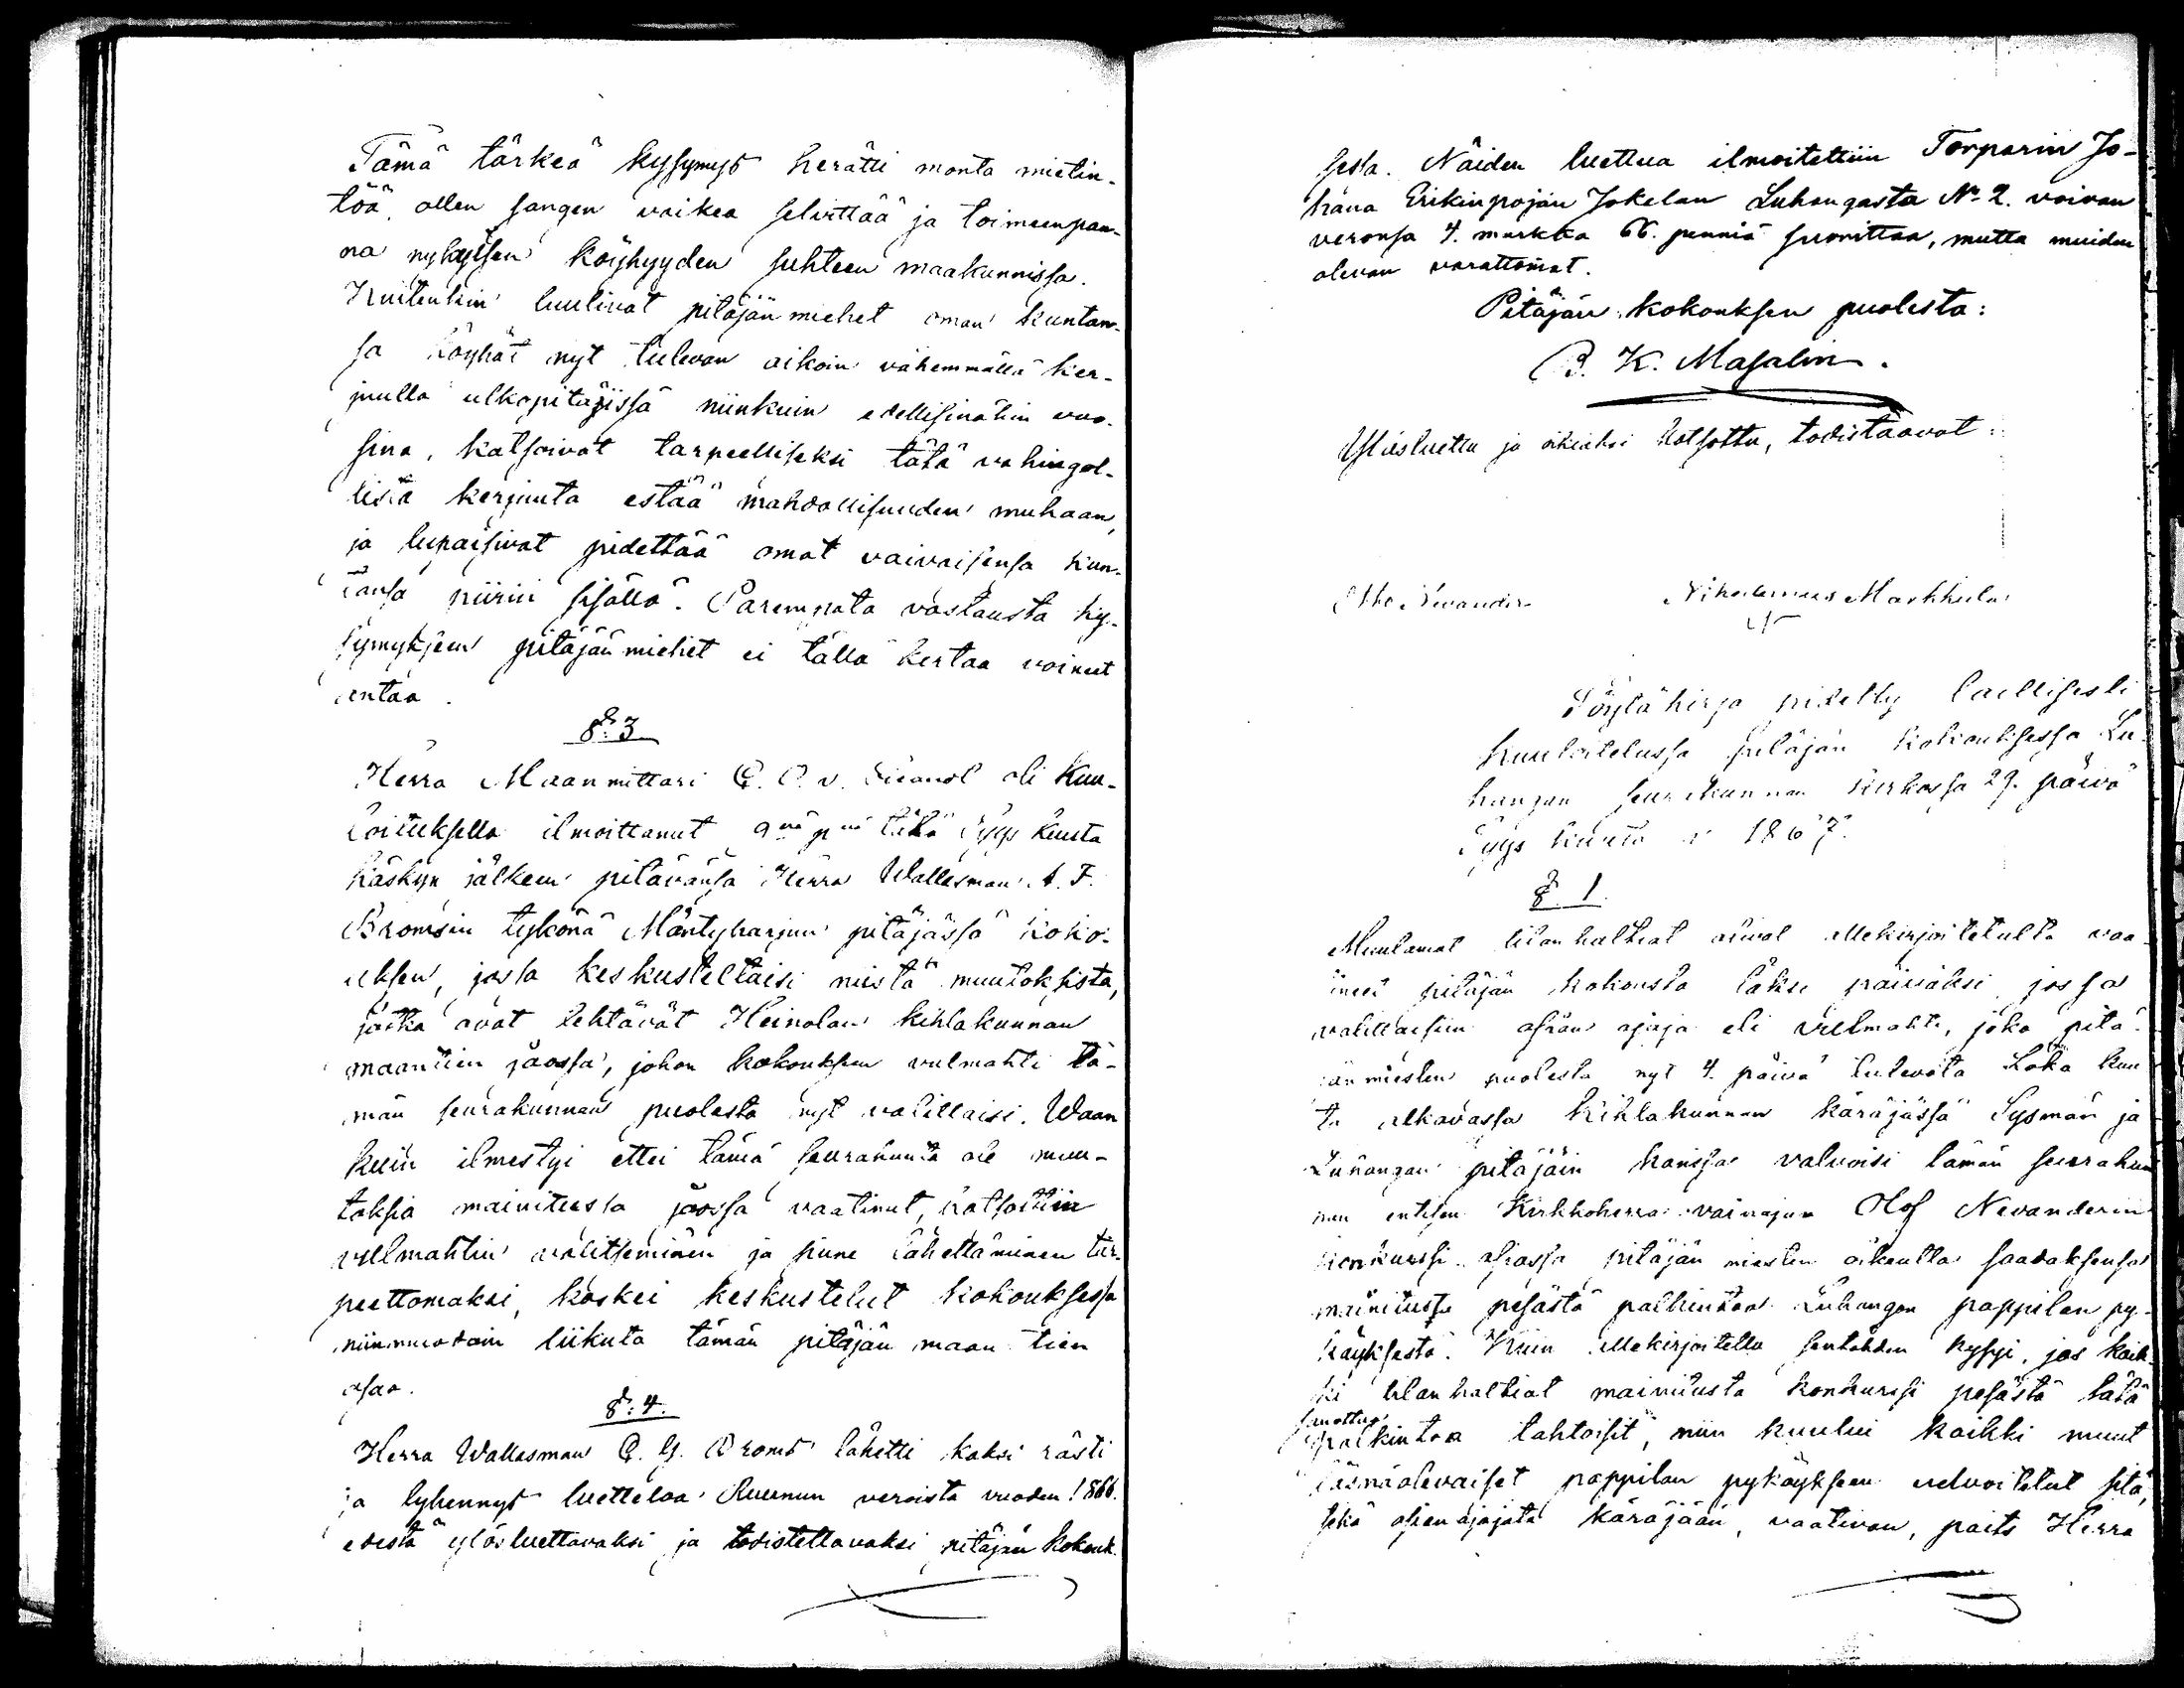 Tämä tärkeä kysymys herätti monta mietin-
töä, ollen sangen vaikea selvittää ja toimeenpan-
na nykyisen köyhyyden suhteen maakunnissa.
Kuitenkin luulivat pitäjän miehet oman kuntan-
sa köyhät nyt tulevan aikoin vähemmällä ker-
juulla ulkopitäjissä niinkuin edellisinäkin vuo-
sina, katsoivat tarpeelliseksi tätä vahingol-
lista kerjuuta estää mahdollisuuden mukaan,
ja lupaisivat pidettää omat vaivaisensa kun-
tansa piirin sisällä. Parempata vastausta ky-
symykseen pitäjän miehet ei tällä kertaa voineet
antaa.
§: 3
Herra Maanmittari oli Kuu-
loituksella ilmoittanut 9nä pnä tätä Syys kuuta
käskyn jälkeen pitävänsä Herra Wallesman A. F.
Bromsin tykönä Mäntyharjun pitäjässä koko-
uksen, jossa keskusteltaisi niistä muutoksista,
jotka ovat tehtävät Heinolan kihlakunnan
maantien jaossa, johon kokouksen vulmahti tä-
män seurakunnan puolesta nyt valittaisi. Waan
kuin ilmestyi ettei tämä seurakunta ole muu-
toksia mainitussa jaossa vaatinut, katsottiin
vullmahtin valitseminen ja sinne lähettäminen tar-
peettomaksi, koskei keskustelut kokouksessa
niinmuodoin liikuta tämän pitäjän maan tien
osaa.
§: 4.
Herra Wallesman C. G. Broms lähetti kaksi rästi
ja lyhennys luetteloa Ruunun veroista vuoden 1866.
edestä ylösluettavaksi ja todistettavaksi pitäjän kokouk-
sesta. Näiden luettua ilmoitettiin Torparin Jo-
hana Erikinpojan Jokelan Luhangasta No 2. voivan
veronsa 4. markka 66. penniä suorittaa, mutta muiden
olevan varattomat.
Pitäjän kokouksen puolesta:
B. K. Masalin.
Ylösluettu ja oikiaksi katsottu, todistaavat:
Otto Nevander Nikodemus Markkula
Pöytäkirja pidetty laillisesti
kuuloitelussa pitäjän kokouksessa Lu-
hangan seurakunnan kirkossa 29. päivä
Syys kuuta 1867.
§ 1.
Muutamat tilanhaltiat olivat allekirjoitetulta vaa-
tineet pitäjän kokousta täksi päiväksi, jossa
valittaisiin asian ajaja eli vullmahti, joka pitä-
jän miesten puolesta nyt 4. päivä tulevata Loka kuu-
ta alkavassa Kihlakunnan käräjässä Sysmän ja
Luhangan pitäjäin kanssa valvoisi tämän seurakun-
nan entisen Kirkkoherra vainajan Olof Nevanderin
konkurssi asiassa pitäjän miesten oikeutta saadaksensa
mainitussa pesästä palkintoa Luhangan pappilan py-
käyksestä. Kuin allekirjoitettu sentähden kysyi, jos kaik-
ki tilanhaltiat mainitusta konkurssi pesästä tätä
sanottua
palkintoa tahtoisit, niin kuului kaikki muut
läsnäolevaiset pappilan pykäykseen velvoitetut sitä,
sekä asianajajata käräjään, vaativan, paits Herra